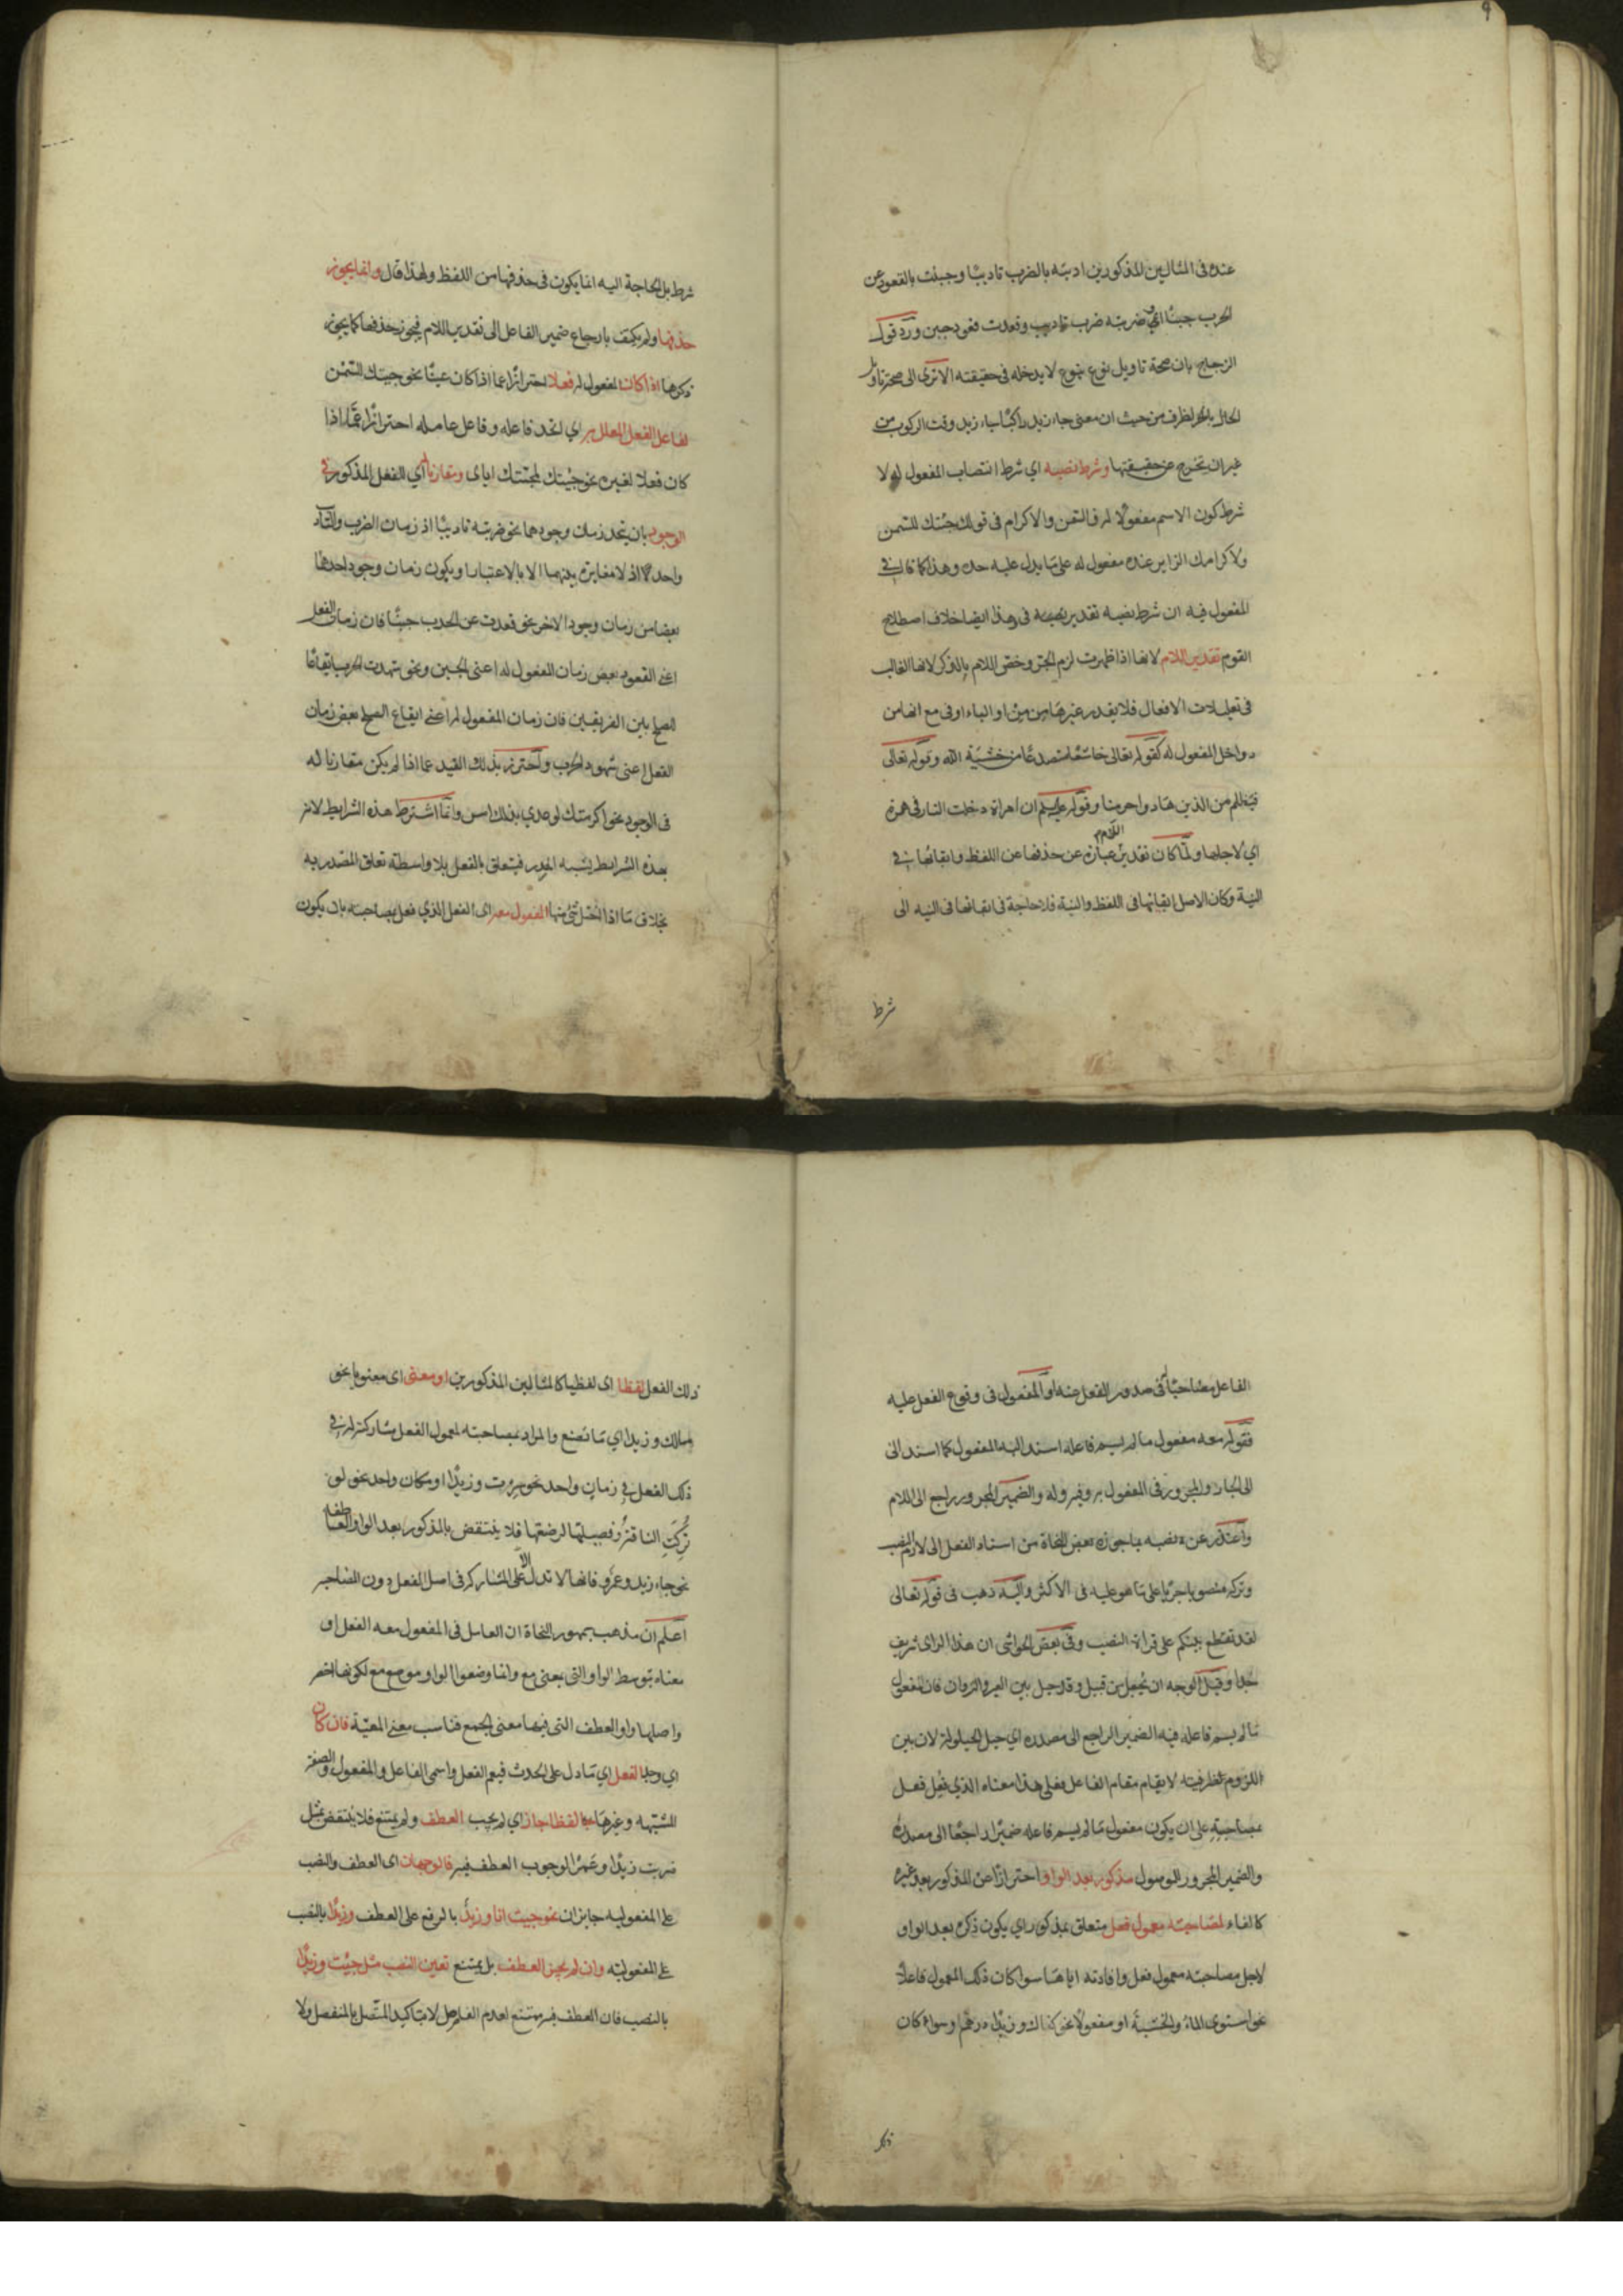 عنده فى المثالين المذكورين ادبته بالضرب تاديبًا وجبنت بالقعود عن
الحرب جبنًا او ضربته ضرب تاديب وقعدت قعود جبن ورد قول
الزجاج بان صحة تاويل نوع بنوع لا يدخله فى حقيقته الا ترى الى صحة تاويل
الحال بالظرف من حيث ان معنى جاء زيد راكبًا جاء زيد وقت الركوب من
غير ان تخرج عن حقيقتها وشرط نصبه اي شرط انتصاب المفعول له لا
شرط كون الاسم مفعولًا له فالسمن والاكرام فى قولك جئتك للسمن
ولاكرامك الزاير عنده مفعول له على ما يدل عليه حده وهذا كما قال فى
المفعول فيه ان شرط نصبه تقدير فى وهذا ايضا خلاف اصطلاح
القوم تقدير اللام لانها اذا ظهرت لزم الجر وخص اللام بالذكر لانها الغالب
فى تعليلات الافعال فلا يقدر غيرها من من او الباء او فى مع انها من
دواخل المفعول له كقوله تعالى خاشعًا متصدعًا من خشية الله وقوله تعالى
فبظلم من الذين هادوا حرمنا وقوله عليه السلم ان امراة دخلت النار فى هرة
اي لاجلها ولما كان تقدير اللام عبارة عن حذفها عن اللفظ وابقائها فى
النية وكان الاصل ابقائها فى اللفظ والنية فلا حاجة فى ابقائها فى النية الى
شرط
شرط بل الحاجة اليه انما يكون فى حذفها من اللفظ ولهذا قال وانما يجوز
حذفها ولم يكتف بارجاع ضمير الفاعل الى تقدير اللام فيجوز حذفها كما يجوز
ذكرها اذا كان المفعول له فعلًا احترازًا عما اذا كان عينًا نحو جيتك للسمن
لفاعل الفعل المعلل به اي اتحد فاعله وفاعل عامله احترازًا عما اذا
كان فعلا لغيره نحو جيئتك لمجئتك اياى ومقارنا له اي الفعل المذكور فى
الوجود بان يتحد زمان وجودهما نحو ضربته تاديبًا اذ زمان الضرب والتاديب
واحد اذ لا مغايرة بينهما الا بالاعتبار او يكون زمان وجود احدهما
بعضا من زمان وجود الاخر نحو قعدت عن الحرب جبنًا فان زمان الفعل
اعنى القعود بعض زمان المفعول له اعنى الجبن ونحو شهدت الحرب ايقاعًا
للصلح بين الفريقين فان زمان المفعول له اعنى ايقاع الصلح بعض زمان
الفعل اعنى شهود الحرب واحترز بذلك القيد عما اذا لم يكن مقارنا له
فى الوجود نحو اكرمتك لوعدي بذلك امس وانما اشترط هذه الشرايط لانه
بهذه الشرايط يشبه المصدر فيتعلق بالفعل بلا واسطة تعلق المصدر به
بخلاف ما اذا اختل شئ منها المفعول معه اى الفعل الذي فعل بمصاحبته بان يكون
الفاعل مصاحبًا له فى صدور الفعل عنه او المفعول فى وقوع الفعل عليه
فقوله معه مفعول ما لم يسم فاعله اسند اليه المفعول كما اسند الى
الى الجار والمجرور فى المفعول به وفيه وله والضمير المجرور راجع الى اللام
واعتذر عن نصبه بما جوزه بعض النحاة من اسناد الفعل الى لازم النصب
وتركه منصوبا جريًا على ما هو عليه فى الاكثر واليه ذهب فى قوله تعالى
لقد تقطع بينكم على قراة النصب وفى بعض الحواشى ان هذا الراى شريف
جدا وقيل الوجه ان يجعل من قبيل وقد حيل بين العير والنزوان فان مفعول
ما لم يسم فاعله فيه الضمير الراجع الى مصدره اي حيل الحيلولة لان بين
للزوم ظرفيته لا يقام مقام الفاعل فعلى هذا معناه الذي فعل فعل
بمصاحبته على ان يكون مفعول ما لم يسم فاعله ضميرًا راجعًا الى مصدره
والضمير المجرور للموصول مذكور بعد الواو احترازًا عن المذكور بعد غيره
كالفاء لمصاحبته معمول فعل متعلق بمذكور اي يكون ذكره بعد الواو
لاجل مصاحبته معمول فعل وافادته اياها سوا كان ذلك المعمول فاعلا
نحو استوى الماء والخشبة او مفعولًا نحو كفاك وزيدًا درهم وسواء كان
ذلك
ذلك الفعل لفظا اى لفظيا كالمثالين المذكورين او معنى اى معنويا نحو
مالك وزيدا اي ما تصنع والمراد بمصاحبته لمعمول الفعل مشاركته له فى
ذلك الفعل فى زمان واحد نحو سرت وزيدًا او مكان واحد نحو لو
تركت الناقة وفصيلتها لرضعتها فلا ينتقض بالمذكور بعد الواو العاطفه
نحو جاء زيد وعمرو فانها لا تدل الا على المشاركة فى اصل الفعل دون المصاحبة
اعلم ان مذهب جمهور النحاة ان العامل فى المفعول معه الفعل او
معناه بتوسط الواو التى بمعنى مع وانما وضعوا الواو موضع مع لكونها اخصر
واصلها واو العطف التى فيها معنى الجمع فناسب معنى المعيّة فان كان
اي وجد الفعل اي ما دل على الحدث فيعم الفعل واسمى الفاعل والمفعول والصفة
المشبهه وغيرها لفظا جاز اي لم يجب العطف ولم يمتنع فلا ينتقض بمثل
ضربت زيدًا وعمرًا لوجوب العطف فيه فالوجهان اى العطف والنصب
على المفعوليه جايزان نحو جيت انا وزيدٌ بالرفع على العطف وزيدًا بالنصب
على المفعولية وان لم يجز العطف بل يمتنع تعين النصب مثل جيئت وزيدًا
بالنصب فان العطف فيه ممتنع لعدم الفاصل لا بتاكيد المتصل بالمنفصل ولا